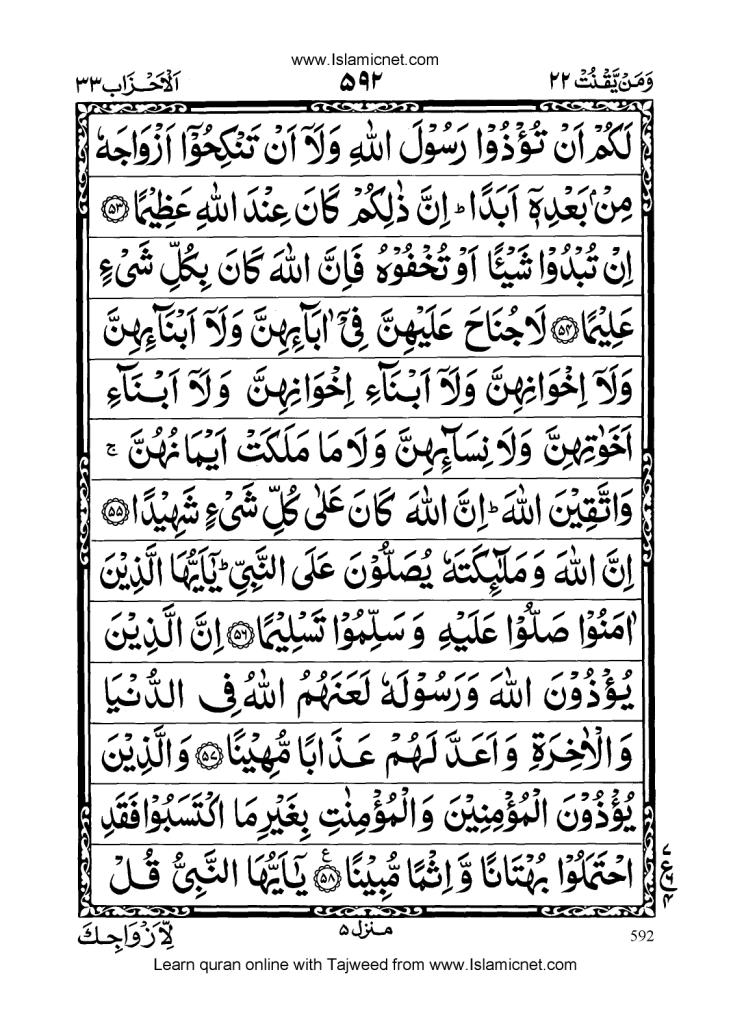 www.Islamicnet.com
وَمَنْ يَّقْنُتْ ٢٢ ۵۹۲ اَلْاَحْزَاب ٣٣
لَكُمْ اَنْ تُؤْذُوْا رَسُوْلَ اللّٰهِ وَلَاۤ اَنْ تَنْكِحُوْۤا اَزْوَاجَهٗ
مِنْۢ بَعْدِهٖۤ اَبَدًا ؕ اِنَّ ذٰلِكُمْ كَانَ عِنْدَ اللّٰهِ عَظِيْمًا ﴿۵۳﴾
اِنْ تُبْدُوْا شَيْـًٔا اَوْ تُخْفُوْهُ فَاِنَّ اللّٰهَ كَانَ بِكُلِّ شَیْءٍ
عَلِيْمًا ﴿۵۴﴾ لَا جُنَاحَ عَلَيْهِنَّ فِیْۤ اٰبَآئِهِنَّ وَلَاۤ اَبْنَآئِهِنَّ
وَلَاۤ اِخْوَانِهِنَّ وَلَاۤ اَبْنَآءِ اِخْوَانِهِنَّ وَلَاۤ اَبْنَآءِ
اَخَوٰتِهِنَّ وَلَا نِسَآئِهِنَّ وَلَا مَا مَلَكَتْ اَيْمَانُهُنَّ ۚ
وَاتَّقِيْنَ اللّٰهَ ؕ اِنَّ اللّٰهَ كَانَ عَلٰی كُلِّ شَیْءٍ شَهِيْدًا ﴿۵۵﴾
اِنَّ اللّٰهَ وَمَلٰٓئِكَتَهٗ يُصَلُّوْنَ عَلَی النَّبِیِّ ؕ يٰۤاَيُّهَا الَّذِيْنَ
اٰمَنُوْا صَلُّوْا عَلَيْهِ وَسَلِّمُوْا تَسْلِيْمًا ﴿۵۶﴾ اِنَّ الَّذِيْنَ
يُؤْذُوْنَ اللّٰهَ وَرَسُوْلَهٗ لَعَنَهُمُ اللّٰهُ فِی الدُّنْيَا
وَالْاٰخِرَةِ وَاَعَدَّ لَهُمْ عَذَابًا مُّهِيْنًا ﴿۵۷﴾ وَالَّذِيْنَ
يُؤْذُوْنَ الْمُؤْمِنِيْنَ وَالْمُؤْمِنٰتِ بِغَيْرِ مَا اكْتَسَبُوْا فَقَدِ
احْتَمَلُوْا بُهْتَانًا وَّاِثْمًا مُّبِيْنًا ﴿۵۸﴾ ع يٰۤاَيُّهَا النَّبِیُّ قُلْ
منزل ۵
لِّاَزْوَاجِكَ
592
Learn quran online with Tajweed from www.Islamicnet.com